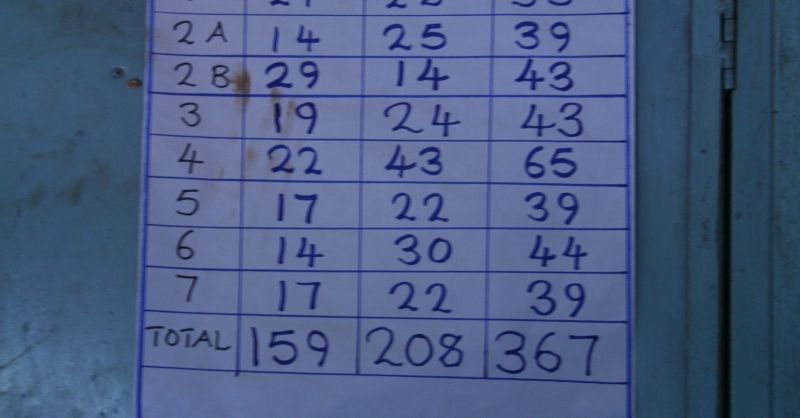 2 A 14 25 39
2 B 29 14 43
3 19 24 43
4 22 43 65
5 17 22 39
6 14 30 44
7 17 22 39
TOTAL 159 208 367